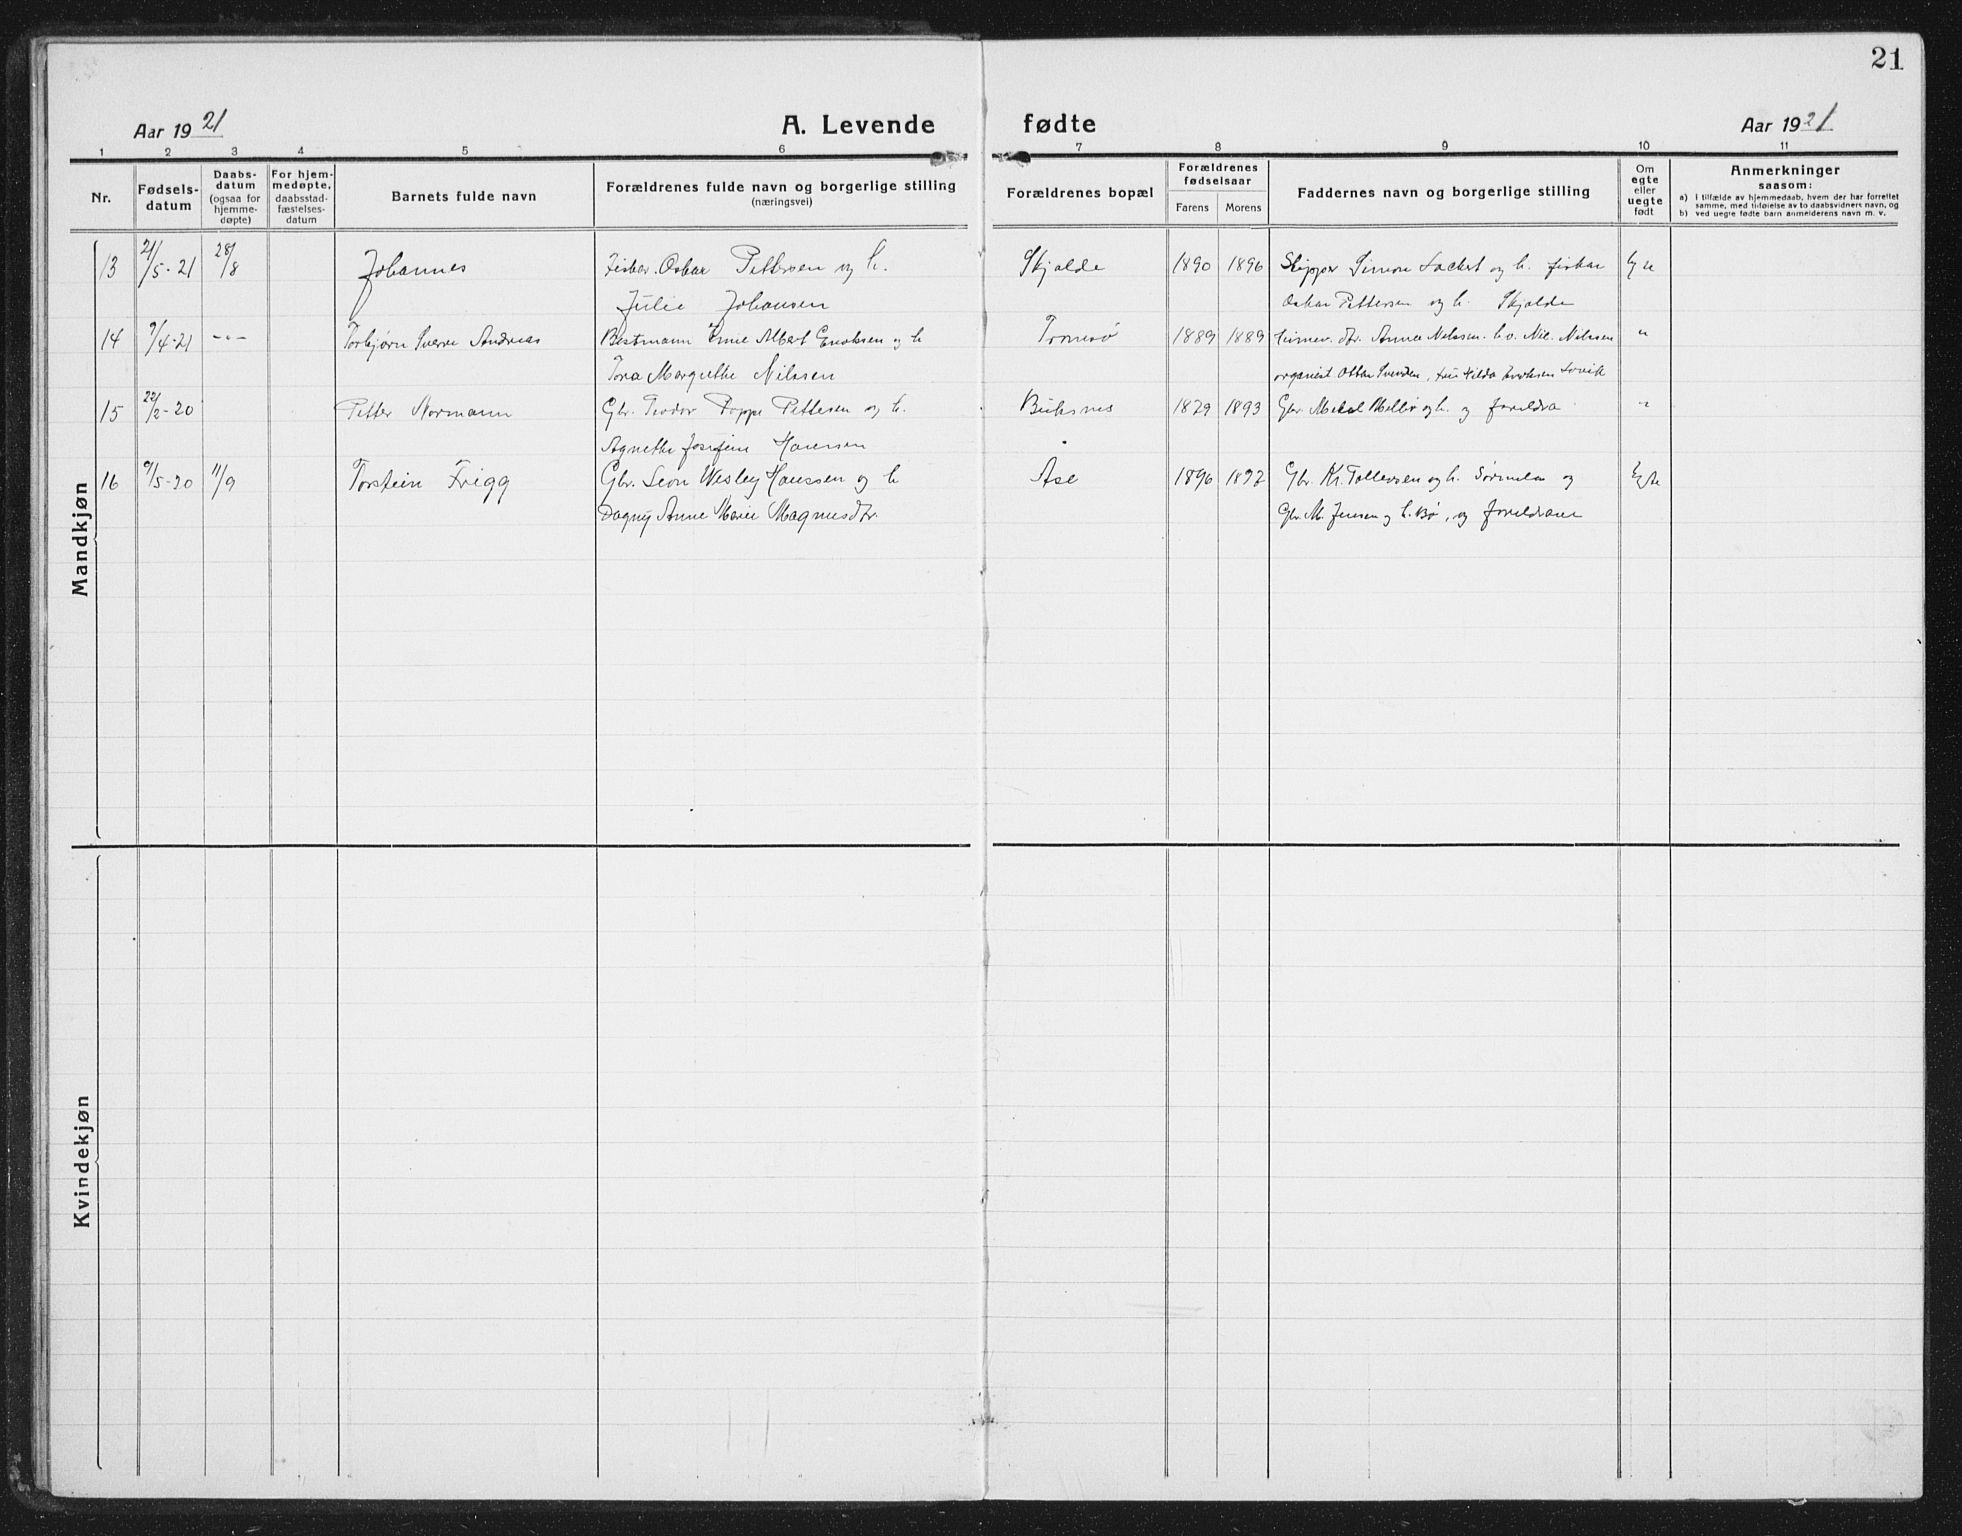 21
Aar 1921
A. Levende
fødte
Aar 1921
1 2 3 4 5 6 7 8 9 10 11
Nr.
Fødsels-
datum
Daabs-
datum
(ogsaa for
hjemme-
døpte)
For hjem-
medøpte,
daabsstad-
fæstelses-
datum
Barnets fulde navn
Forældrenes fulde navn og borgerlige stilling
(næringsvei)
Forældrenes bopæl
Forældrenes
fødselsaar
Farens Morens
Faddernes navn og borgerlige stilling
Om
egte
eller
uegte
født
Anmerkninger
saasom:
a) i tilfælde av hjemmedaab, hvem der har forrettet
samme, med tilføielse av to daabsvidners navn, og
b) ved uegte fødte barn anmelderens navn m. v.
Mandkjøn
13 21/5-21 28/8 Johannes Fisker Oskar Pettersen og h. Skjolde 1890 1896 Skipper Simon og h. fisker Egte
Julie Johansen Oskar Pettersen og h. Skjolde
14 9/4-21 -"- Torbjørn Sverre Andreas Bestmann Albert Enoksen og h Tromsø 1889 1889 Anna Nilssen. Nilssen "
Tora Margrethe Nilssen organist Ottar
15 22/2-20 Petter Normann Gbr. Teodor Poppe Pettersen og h. Buksnes 1879 1893 Gbr. og h. og foreldra "
Agnethe Josefine Hansen
16 9/5-20 11/9 Torstein Frigg Gbr. Leon Wesley Hanssen og h Åse 1896 1897 Gbr. Kr. Tollevsen og h. og Egte
Dagny Anne Marie Magnusdtr. Gbr. M. Jensen og h. Bø, og foreldrane
Kvindekjøn